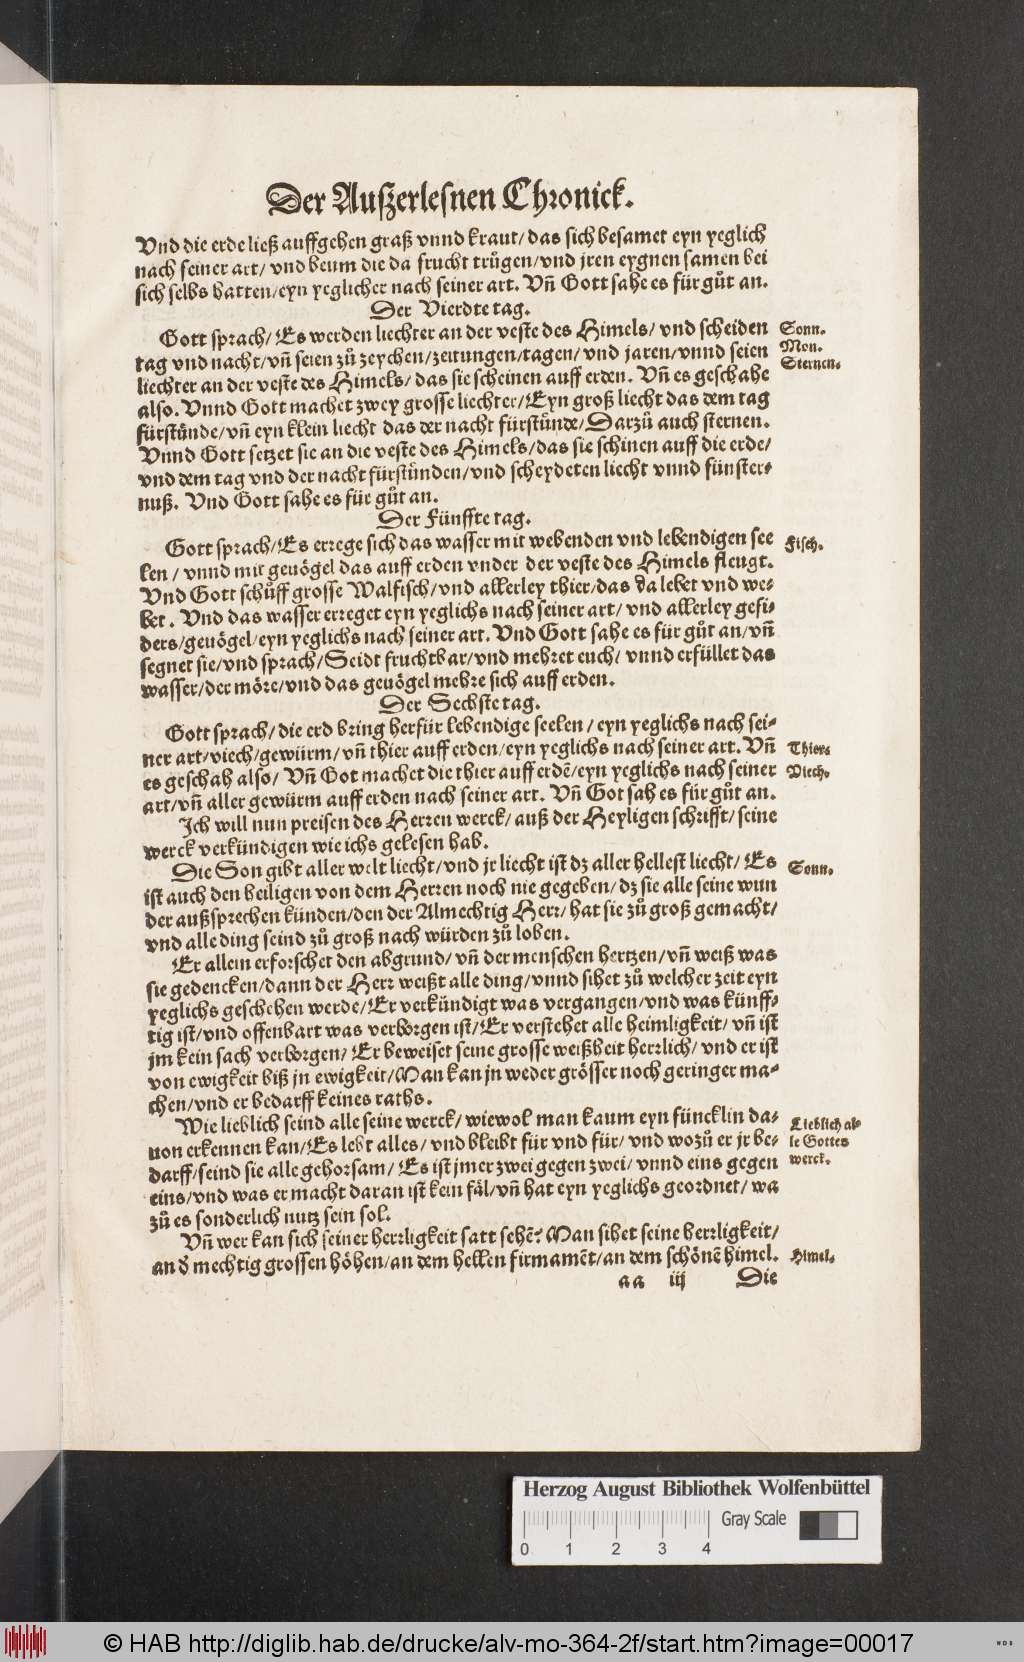 Der Außerlesnen Chronick.
Vnd die erde ließ auffgehen graß vnnd kraut/ das sich besamet eyn yeglich
nach seiner art/ vnd beum die da frucht trůgen/ vnd jren eygnen samen bei
sich selbs hatten/ eyn yeglicher nach seiner art. Vñ Gott sahe es für gůt an.
Der Vierdte tag.
Gott sprach/ Es werden liechter an der veste des Himels/ vnd scheiden
tag vnd nacht/ vñ seien zů zeychen/ zeitungen/ tagen/ vnd jaren/ vnnd seien
liechter an der veste des Himels/ das sie scheinen auff erden. Vñ es geschahe
also. Vnnd Gott machet zwey grosse liechter/ Eyn groß liecht das dem tag
fürstünde/ vñ eyn klein liecht das der nacht fürstünde/ Darzů auch sternen.
Vnnd Gott setzet sie an die veste des Himels/ das sie schinen auff die erde/
vnd dem tag vnd der nacht fürstünden/ vnd scheydeten liecht vnnd fünster-
nuß. Vnd Gott sahe es für gůt an.
Sonn.
Mon.
Sternen.
Der Fünffte tag.
Gott sprach/ Es errege sich das wasser mit webenden vnd lebendigen see
len/ vnnd mit geuögel das auff erden vnder der veste des Himels fleugt.
Vnd Gott schůff grosse Walfisch/ vnd allerley thier/ das da lebet vnd we-
bet. Vnd das wasser erreget eyn yeglichs nach seiner art/ vnd allerley gefi-
ders/ geuögel/ eyn yeglichs nach seiner art. Vnd Gott sahe es für gůt an/ vñ
segnet sie/ vnd sprach/ Seidt fruchtbar/ vnd mehret euch/ vnnd erfüllet das
wasser/ der möre/ vnd das geuögel mehre sich auff erden.
Fisch.
Der Sechste tag.
Gott sprach/ die erd bring herfür lebendige seelen/ eyn yeglichs nach sei-
ner art/ viech/ gewürm/ vñ thier auff erden/ eyn yeglichs nach seiner art. Vñ
es geschah also/ Vñ Got machet die thier auff erdẽ/ eyn yeglichs nach seiner
art/ vñ aller gewürm auff erden nach seiner art. Vñ Got sah es für gůt an.
Thier.
Viech.
Ich will nun preisen des Herren werck/ auß der Heyligen schrifft/ seine
werck verkündigen wie ichs gelesen hab.
Die Son gibt aller welt liecht/ vnd jr liecht ist dz aller hellest liecht/ Es
ist auch den heiligen von dem Herren noch nie gegeben/ dz sie alle seine wun
der außsprechen künden/ den der Almechtig Herr/ hat sie zů groß gemacht/
vnd alle ding seind zů groß nach würden zů loben.
Sonn.
Er allein erforschet den abgrund/ vñ der menschen hertzen/ vñ weiß was
sie gedencken/ dann der Herr weißt alle ding/ vnnd sihet zů welcher zeit eyn
yeglichs geschehen werde/ Er verkündigt was vergangen/ vnd was künff-
tig ist/ vnd offenbart was verborgen ist/ Er verstehet alle heimligkeit/ vñ ist
jm kein sach verborgen/ Er beweiset seine grosse weißheit herrlich/ vnd er ist
von ewigkeit biß jn ewigkeit/ Man kan jn weder grösser noch geringer ma-
chen/ vnd er bedarff keines raths.
Wie lieblich seind alle seine werck/ wiewol man kaum eyn füncklin da-
uon erkennen kan/ Es lebt alles/ vnd bleibt für vnd für/ vnd wozů er jr be-
darff/ seind sie alle gehorsam/ Es ist jmer zwei gegen zwei/ vnnd eins gegen
eins/ vnd was er macht daran ist kein fäl/ vñ hat eyn yeglichs geordnet/ wa
zů es sonderlich nutz sein sol.
Lieblich al-
le Gottes
werck.
Vñ wer kan sich seiner herrligkeit satt sehẽ? Man sihet seine herrligkeit/
an d̄ mechtig grossen höhen/ an dem hellen firmamẽt/ an dem schönẽ himel.
Himel.
aa iij Die
Herzog August Bibliothek Wolfenbüttel
Gray Scale
0 1 2 3 4
© HAB http://diglib.hab.de/drucke/alv-mo-364-2f/start.htm?image=00017